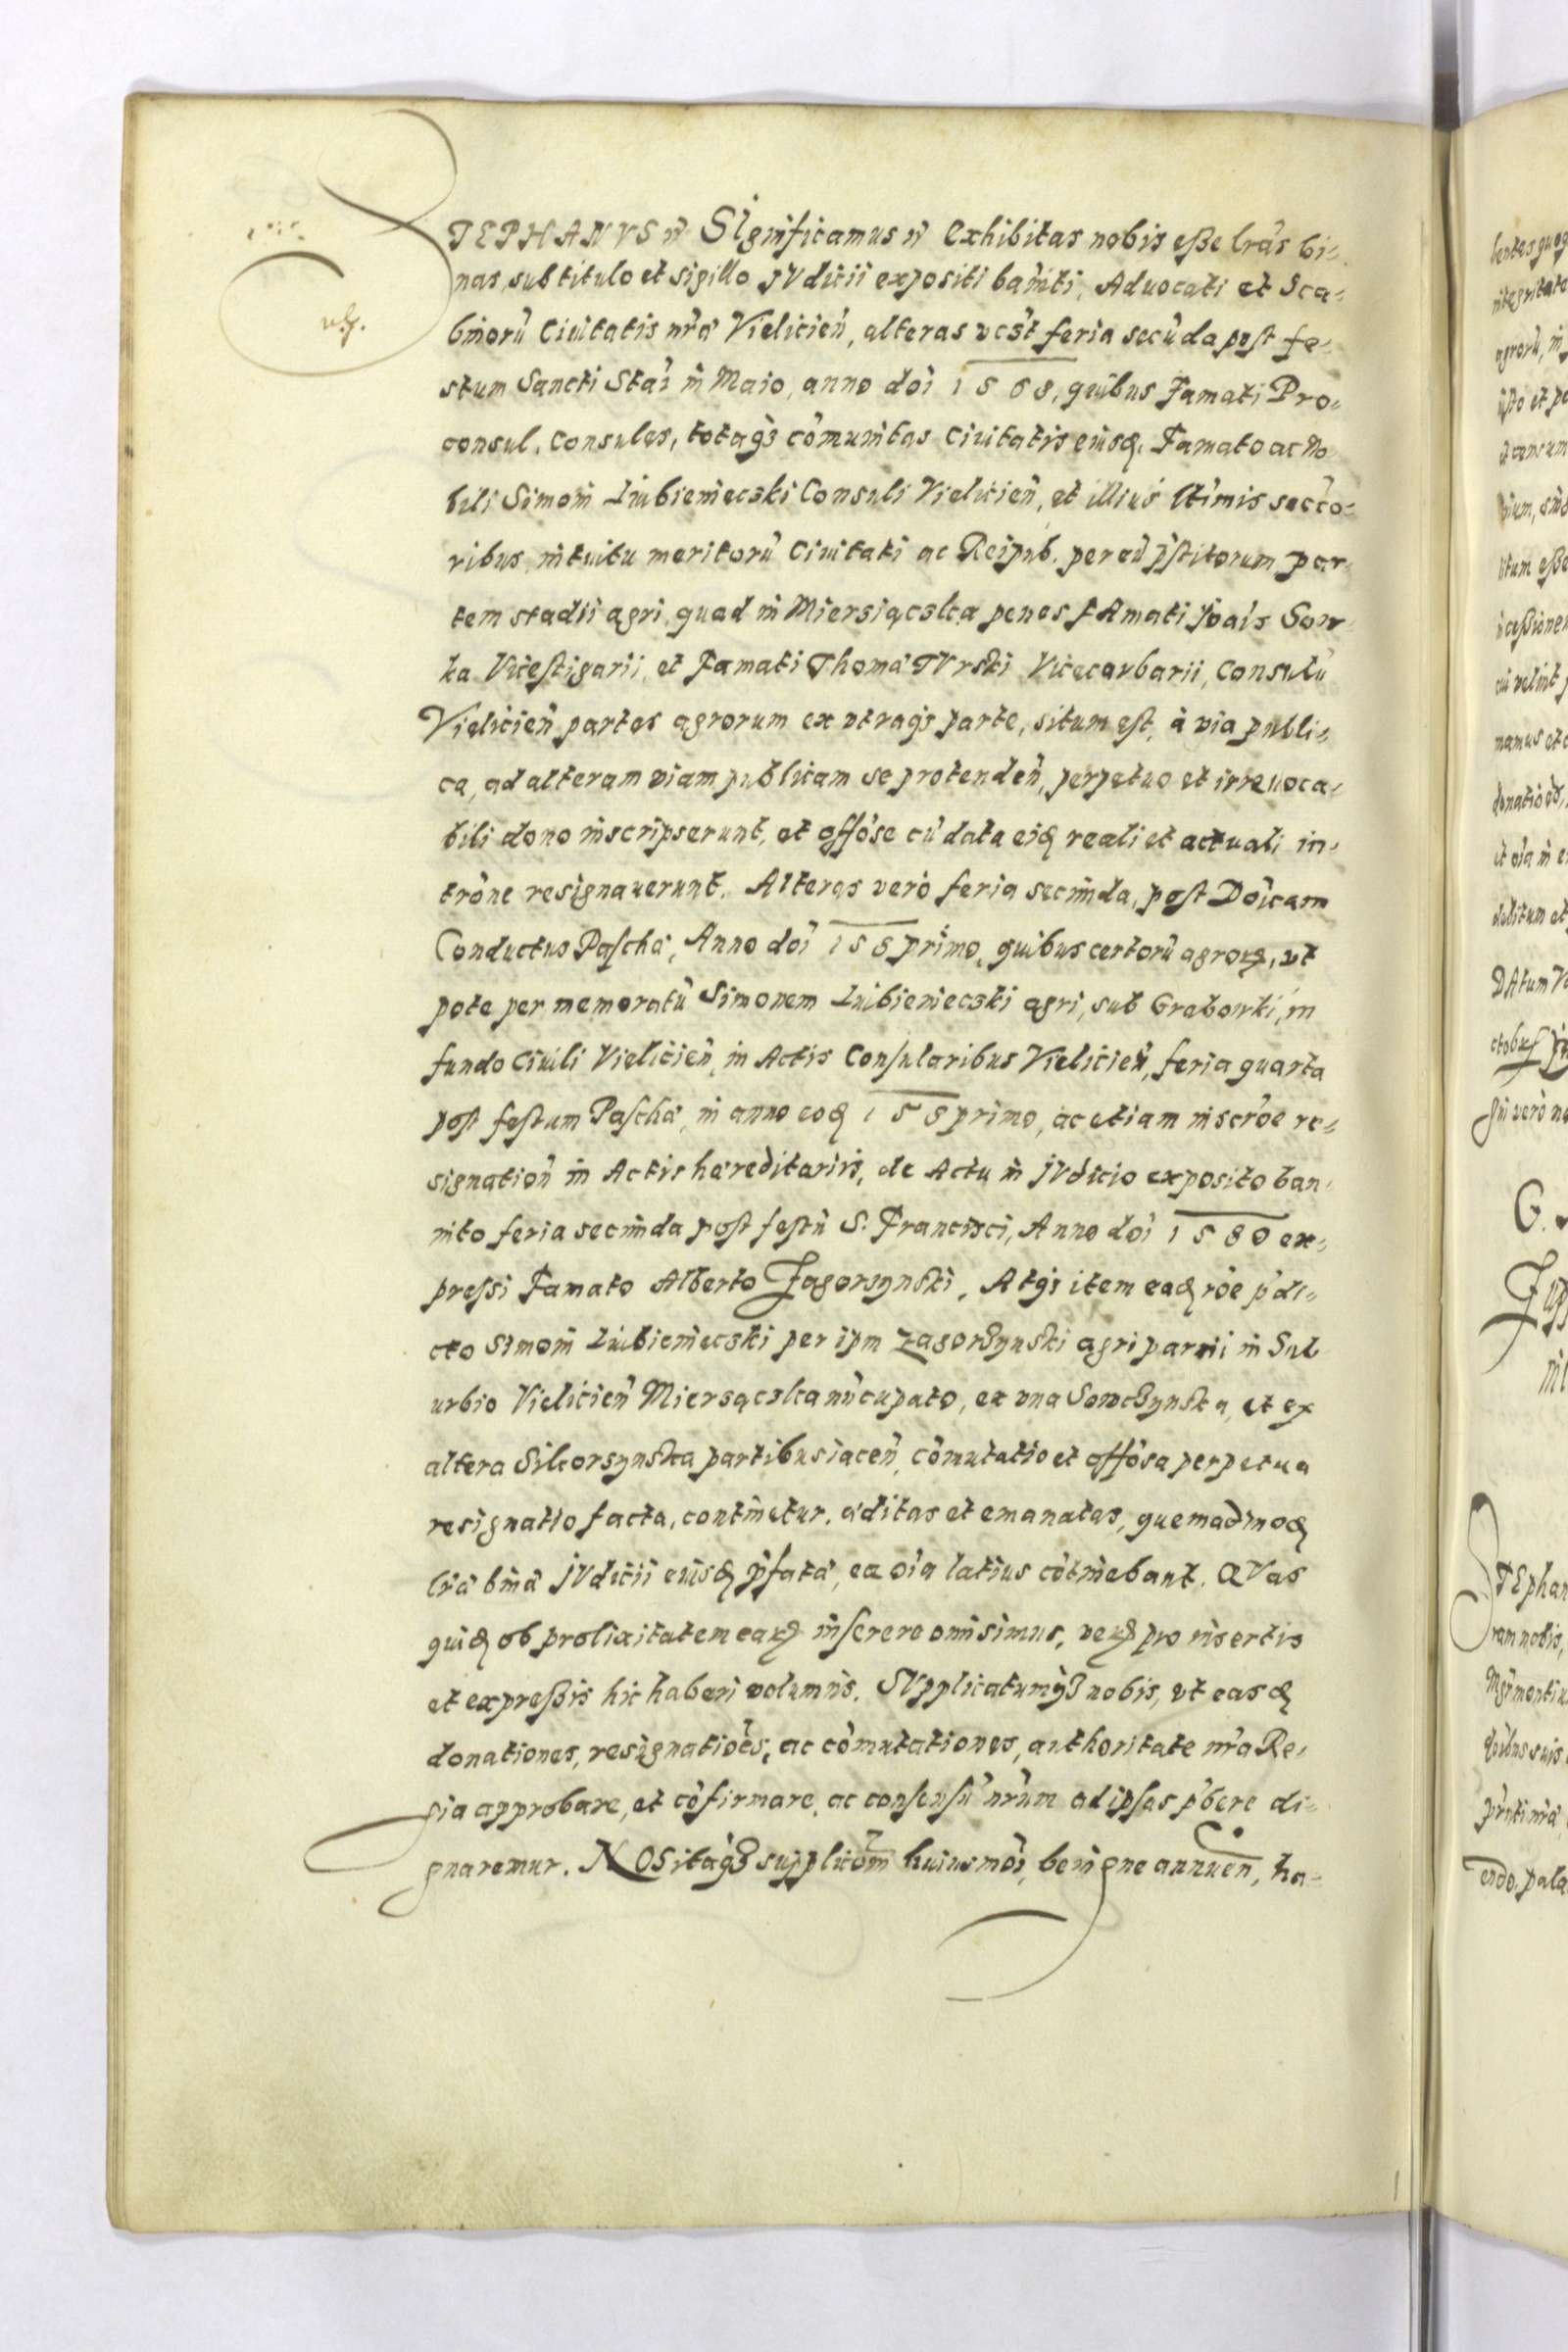 STEPHANVS rc Significamus rc Exhibitas nobis eße lr̃as bi-
nas, sub titulo et sigillo JVdicii expositi bañiti, Aduocati et Sca-
binorũ Ciuitatis nr̃ã Vieliciẽn, alteras feria secũda post fe-
stum Sancti Stãi in Maio, anno doĩ 1568, quibus Famati Pro-
consul, Consules, totaq3 cõmunitas Ciuitatis eiusđ. Famato ac No
bili Simoni Lubieniecski Consuli Vieliciẽn, et illius ltimis sucto-
ribus, intuitu meritorũ Ciuitati ac Reipub. per eũ p̃stitorum par-
tem stadii agri, quod in Miersiącska penes fAmati Joãis Sow-
ka Vicestigarii, et Famati Thomã TVrski Vicecarbarii, Consulũ
Vieliciẽn partes agrorum ex vtraq3 parte, situm est, à via publi-
ca, ad alteram viam publicam se protendẽn, perpetuo et irreuoca-
bili dono inscripserunt, et offõse cũ data eiđ reali et actuali in-
trõne resignauerunt. Alteras verò feria secunda, post Doĩcam
Conductus Paschã, Anno doĩ 158primo, quibus certorũ agroꝝ, vt
pote per memoratũ Simonem Lubieniecski agri, sub Grabowki, in
fundo Ciuili Vieliciẽn, in Actis Consularibus Vieliciẽn, feria quarta
post festum Paschã, in anno eođ 158primo, ac etiam inscrõe re-
signatiõn in Actis hæreditariis, de Actu in JVdicio exposito ban-
nito feria secunda post festũ S. Francisci, Anno doĩ 1580 ex-
preßi Famato Alberto Zagorsynski, Atq3 item eađ rõe p̃di-
cto Simoni Lubieniecski per ipm Zagorsynski agri parui in Sub
urbio Vieliciẽn Miersącska nũcupato, ex vna Sowcsynska, et ex
altera Sikorsynska partibus iacẽn, cõmutatio et offõsa perpetua
resignatio facta, continetur. ãditas et emanatas, quemadmođ
lr̃ã binã JVdicii eiusđ p̃fatã, ea oĩa latius cõtinebant. QVas
quiđ ob prolixitatem eaꝝ inserere omisimus, veꝝ pro insertis
et expreßis hic haberi volumus. SVpplicatumq3 nobis, vt easđ
donationes, resignatiões, ac cõmutationes, authoritate nr̃a Re-
gia approbare, et cõfirmare, ac consensũ nr̃um ad ipsas p̃bere di-
gnaremur. NOS itaq3 supplicõni huiusmõi, benigne annuẽn, ha-